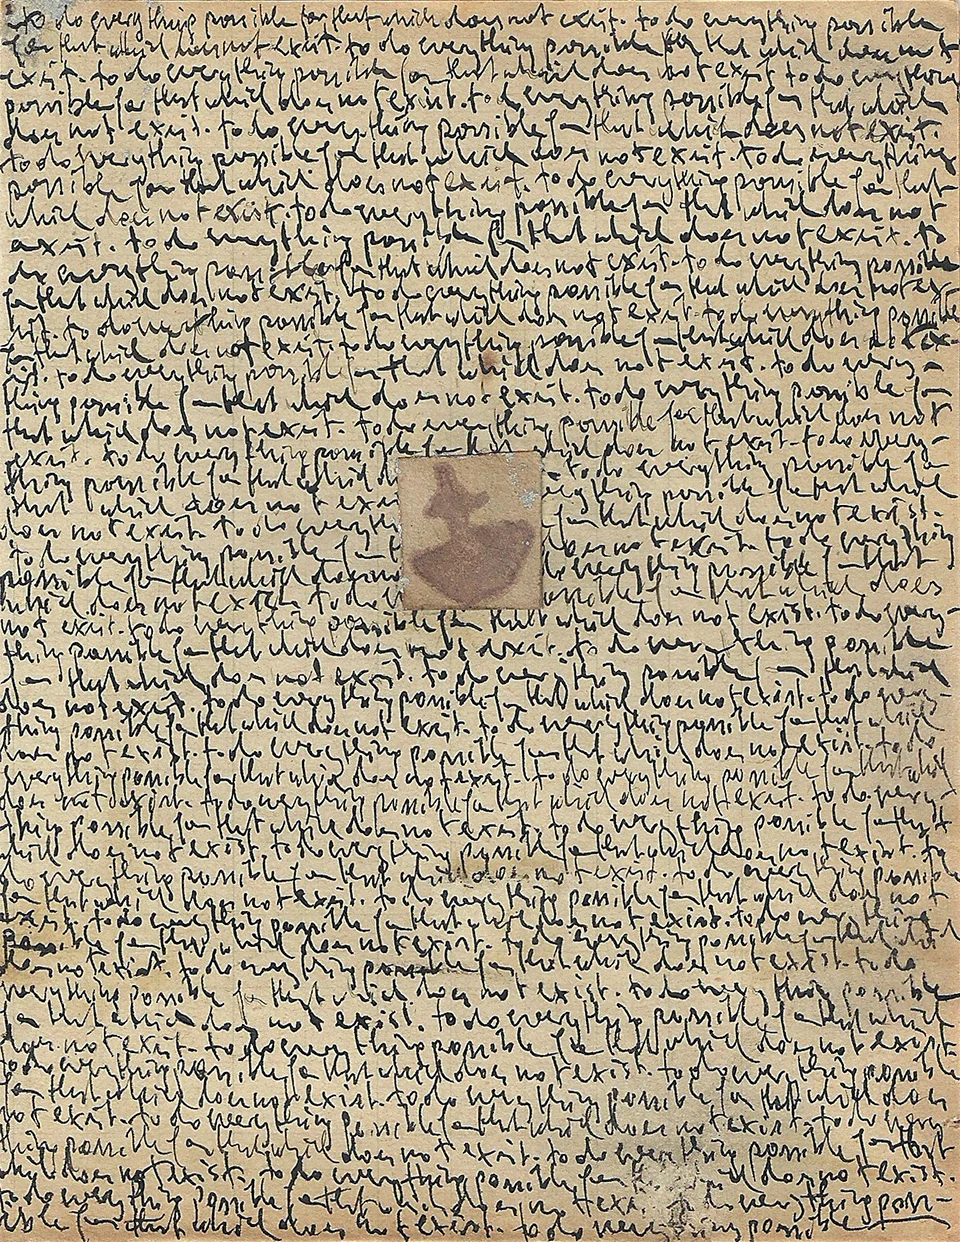 to do everything possible for that which does not exist. to do everything possible
for that which does not exist. to do everything possible for that which does not
exist. to do everything possible for that which does not exist to do everything
possible for that which does not exist. to do everything possible for that which
does not exist. to do everything possible for that which does not exist.
to do everything possible for that which does not exist. to do everything
possible for that which does not exist. to do everything possible for that
which does not exist. to do everything possible for that which does not
exist. to do everything possible for that which does not exist. to
do everything possible for that which does not exist. to do everything possible
for that which does not exist. to do everything possible for that which does not ex-
ist. to do everything possible for that which does not exist. to do everything possible
for that which does not exist. to do everything possible for that which does not ex-
ist. to do everything possible for that which does not exist. to do every-
thing possible for that which does not exist. to do everything possible for
that which does not exist. to do everything possible for that which does not
exist. to do everything possible for that which does not exist. to do every-
thing possible for that which to do everything possible for
that which does not exist everything possible for that which
does not exist. to do everything for that which does not exist.
to do everything possible for does not exist. to do everything
possible for that which does not to do everything possible for that
which does not exist. to do possible for that which does
not exist. to do everything possible for that which does not exist. to do every-
thing possible for that which does not exist. to do everything possible
for that which does not exist. to do everything possible for that which
does not exist. to do everything possible for that which does not exist. to do every-
thing possible for that which does not exist. to do everything possible for that which
does not exist. to do everything possible for that which does not exist. to do
everything possible for that which does not exist. to do everything possible for that which
does not exist. to do everything possible for that which does not exist. to do every-
thing possible for that which does not exist. to do everything possible for that
which does not exist. to do everything possible for that which does not exist. to
do everything possible for that which does not exist. to do everything possible
for that which does not exist. to do everything possible for that which does not
exist. to do everything possible for that which does not exist. to do everything
possible for that which does not exist. to do everything possible for that which
does not exist. to do everything possible for that which does not exist. to do
everything possible for that which does not exist. to do everything possible
for that which does not exist. to do everything possible for that which
does not exist. to do everything possible for that which does not exist.
to do everything possible for that which does not exist. to do everything possible
for that which does not exist. to do everything possible for that which does
not exist. to do everything possible for that which does not exist. to do every-
thing possible for that which does not exist. to do everything possible for that
which does not exist. to do everything possible for that which does not exist.
to do everything possible for that which does not exist to do everything poss-
ible for that which does not exist. to do everything possible